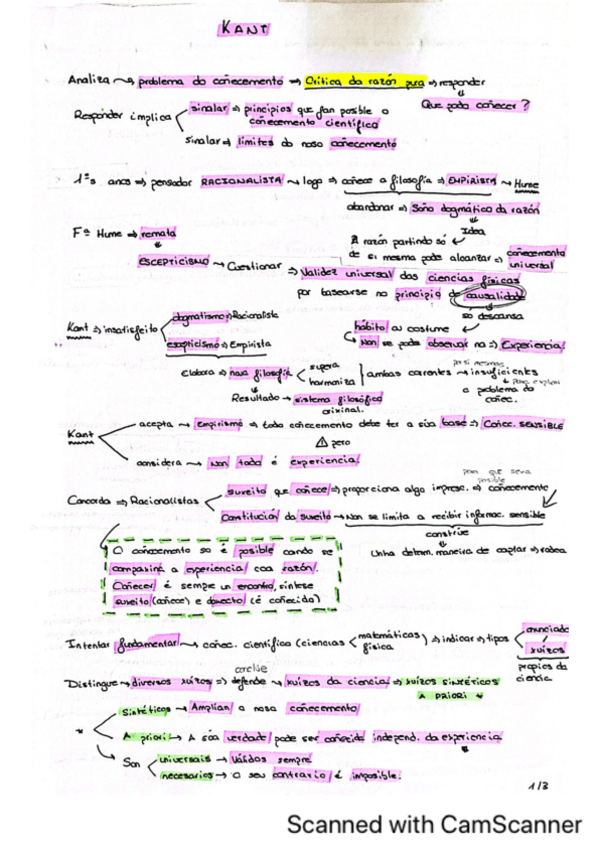 KANT
Analiza → problema do coñecemento ⇒ Crítica da razón pura ⇒ responder
Que podo coñecer?
Responder implica
sinalar ⇒ principios que fan posible o
coñecemento científico
sinalar ⇒ límites do noso coñecemento
1ºs anos ⇒ pensador RACIONALISTA → logo ⇒ coñece a filosofía ⇒ EMPIRISTA → Hume
abandonar ⇒ Soño dogmático da razón
Idea
Fª Hume ⇒ remata
A razón partindo só
de si mesma pode alcanzar ⇒ coñecemento
universal
ESCEPTICISMO → Cuestionar ⇒ Validez universal das ciencias físicas
por basearse no principio de causalidade
so descansa
hábito ou costume
Non se pode observar na ⇒ Experiencia
Kant ⇒ insatisfeito
dogmatismo ⇒ Racionalista
escepticismo ⇒ Empirista
Elabora ⇒ nova filosofía
supera
harmoniza
ambas correntes ⇒ insuficientes
por si mesmas
para explicar
o problema do
coñec.
Resultado → sistema filosófico
orixinal.
Kant
acepta → Empirismo ⇒ todo coñecemento debe ter a súa base ⇒ Coñec. SENSIBLE
⚠ pero
considera → Non todo é experiencia
Concorda ⇒ Racionalistas
suxeito que coñece ⇒ proporciona algo impresc. ⇒ coñecemento
para que sexa
posible
Constitución do suxeito → Non se limita a recibir informac. sensible
constrúe
Unha determ. maneira de captar ⇒ rodea
O coñecemento so é posible cando se
compaxina a experiencia coa razón.
Coñecer é sempre un encontro, síntese
suxeito (coñece) e obxecto (é coñecido)
Intentar fundamentar → coñec. científico (ciencias
matemáticas
física
) ⇒ indicar ⇒ tipos
enunciados
xuízos
propios da
ciencia
Distingue → diversos xuízos ⇒ defende → xuízos da ciencia ⇒ xuízos SINTÉTICOS
conclúe
A PRIORI *
*
Sintéticos → Amplían o noso coñecemento
A priori → A súa verdade pode ser coñecida independ. da experiencia
Son
universais → Válidos sempre
necesarios → O seu contrario é imposible.
1/3
Scanned with CamScanner